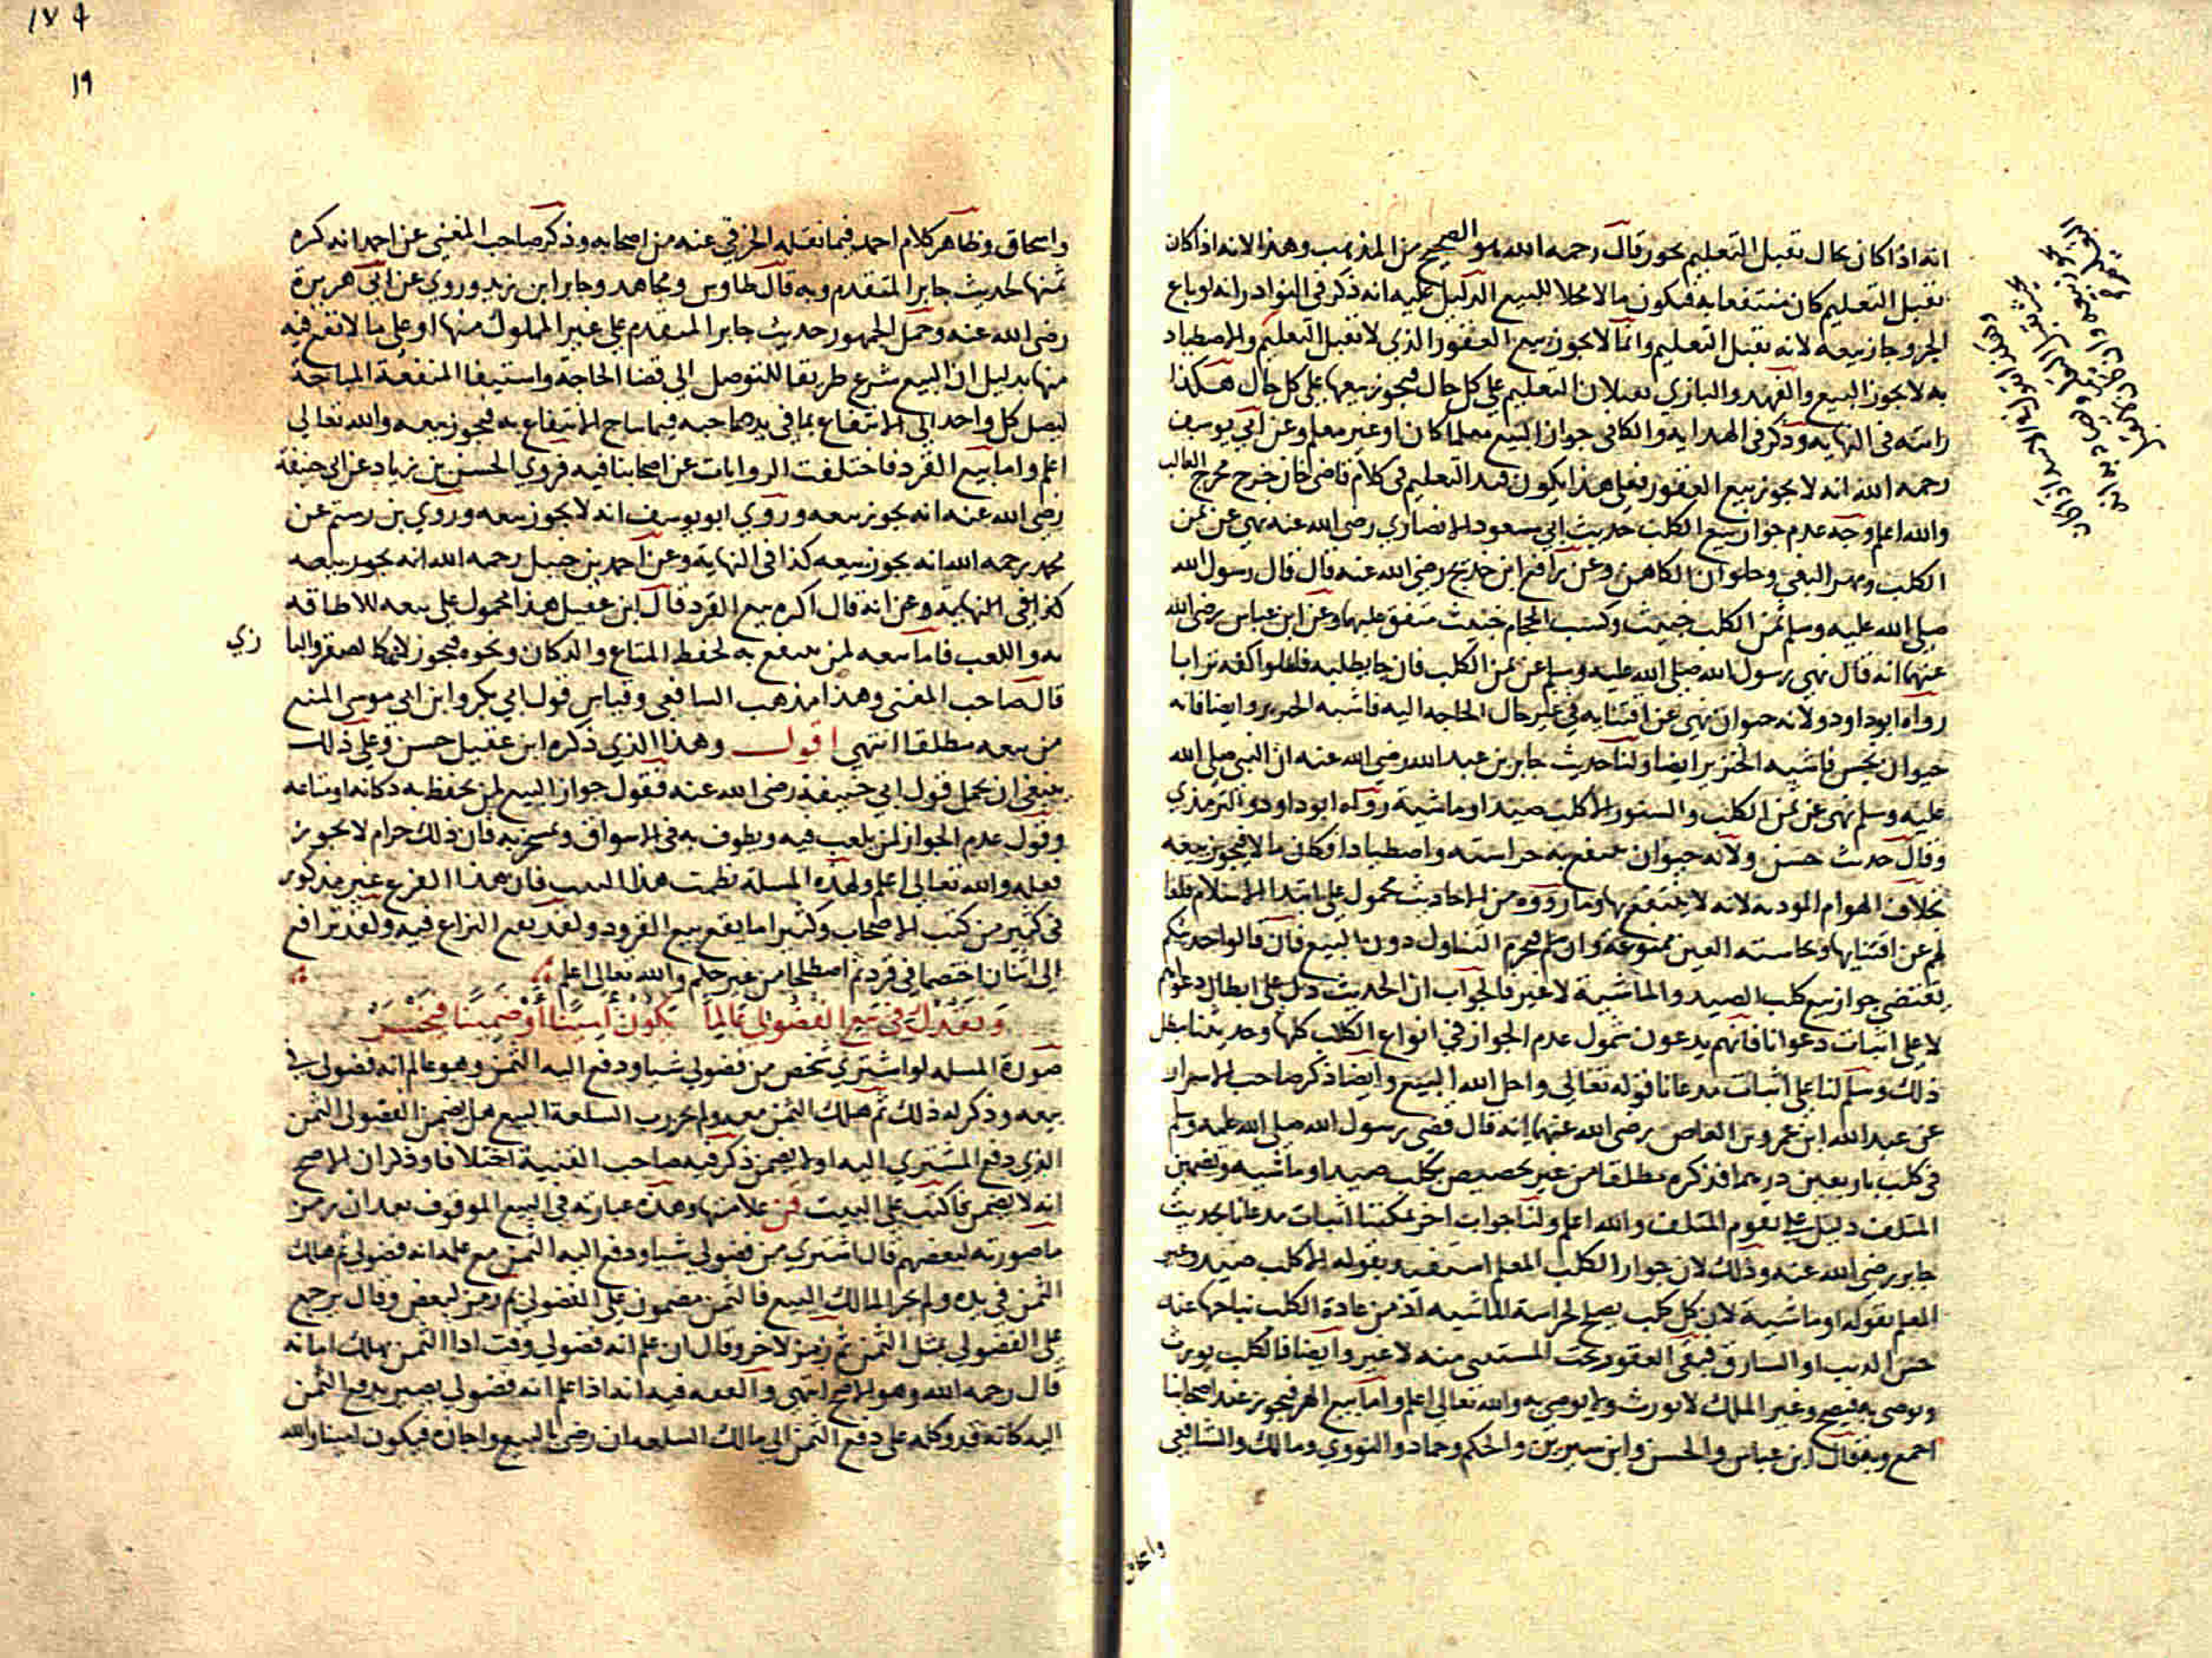 انه اذا كان بحال يقبل التعليم يجوز قال رحمه الله هو الصحيح من المذهب وهذا لانه اذا كان
يقبل التعليم كان منتفعا به فيكون مالا محلا للبيع الدليل عليه انه ذكر في النوادر انه لو باع
الجرو جاز بيعه لانه يقبل التعليم وانما لا يجوز بيع العقور الذي لا يقبل التعليم والاصطياد
به لا يجوز البيع والفهد والبازي يقبلان التعليم على كل حال فيجوز بيعهما على كل حال هكذا
رايته في النهايه وذكر في الهدايه والكافي جواز البيع معلما كان او غير معلم وعن ابي يوسف
رحمه الله انه لا يجوز بيع العقور فعلى هذا يكون قيد التعليم في كلام قاضي خان خرج مخرج الغالب
والله اعلم وجه عدم جواز بيع الكلب حديث ابي مسعود الانصاري رضي الله عنه نهى عن ثمن
الكلب ومهر البغي وحلوان الكاهن وعن رافع ابن خديج رضي الله عنه قال قال رسول الله
صلى الله عليه وسلم ثمن الكلب خبيث وكسب الحجام خبيث متفق عليهما وعن ابن عباس رضي الله
عنهما انه قال نهى رسول الله صلى الله عليه وسلم عن ثمن الكلب فان جا يطلبه فاملوا كفه ترابا
رواه ابو داود ولانه حيوان نهى عن اقتنايه في غير حال الحاجه اليه فاشبه الخنزير وايضا فانه
حيوان نجس فاشبه الخنزير ايضا ولنا حديث جابر بن عبد الله رضي الله عنه ان النبي صلى الله
عليه وسلم نهى عن ثمن الكلب والسنور الا كلب صيد او ماشية رواه ابو داود والترمذي
وقال حديث حسن ولانه حيوان ينتفع به حراسته واصطيادا فكان مالا فيجوز بيعه
بخلاف الهوام الموديه لانه لا ينتفع بها وما رووه من الاحاديث محمول على ابتدا الاسلام قلعا
لهم عن اقتنايها ونجاسته العين ممنوعة وان سلم فيحرم التناول دون البيع فان قالوا حديثكم
يقتضي جواز بيع كلب الصيد والماشية لا غير فالجواب ان الحديث دل على ابطال دعواهم
لا على اثبات دعوانا فانهم يدعون شمول عدم الجواز في انواع الكلاب كلها وحديثنا يبطل
ذلك وسلم لنا على اثبات مدعانا قوله تعالى واحل الله البيع وايضا ذكر صاحب الاسرار
عن عبد الله ابن عمرو بن العاص رضي الله عنهما انه قال قضى رسول الله صلى الله عليه وسلم
في كلب باربعين درهما فذكره مطلقا من غير تخصيص بكلب صيد او ماشيه وتضمين
المتلف دليل على تقوم المتلف والله اعلم ولنا جواب اخر يمكننا اثبات مدعانا بحديث
جابر رضي الله عنه وذلك لان جواز الكلب المعلم استفيد بقوله الا كلب صيد وغير
المعلم بقوله او ماشية لان كل كلب يصلح لحراسة الماشيه اذ من عادة الكلب نباحها عند
حس الذيب او السارق فبقي العقور تحت المستثنى منه لا غير وايضا فالكلب يورث
ويوصى به فيصح وغير الملك لا يورث ولا يوصى به والله تعالى اعلم واما بيع الهر فيجوز عند اصحابنا
اجمع وبه قال ابن عباس والحسن وابن سيرين والحكم وحماد والثوري ومالك والشافعي
واسحاق
١٧٩
١٩
واسحاق وظاهر كلام احمد فيما نقله الخرقي عنه من اصحابه وذكر صاحب المغني عن احمد انه كره
ثمنها لحديث جابر المتقدم وبه قال طاوس ومجاهد وجابر ابن زيد وروي عن ابي هريرة
رضي الله عنه وحمل الجمهور حديث جابر المتقدم على غير المملوك منها او على ما لا نفع فيه
منها بدليل ان البيع شرع طريقا للتوصل الى قضا الحاجة واستيفا المنفعة المباحة
ليصل كل واحد الى الانتفاع بما في يد صاحبه فيما يباح الانتفاع به فيجوز بيعه والله تعالى
اعلم واما بيع القرد فاختلفت الروايات عن اصحابنا فيه فروي الحسن بن زياد عن ابي حنيفة
رضي الله عنه انه يجوز بيعه وروي ابو يوسف انه لا يجوز بيعه وروي بن رستم عن
محمد رحمه الله انه يجوز بيعه كذا في النهايه وعن احمد بن حنبل رحمه الله انه يجوز بيعه
كذا في النهايه وعن انه قال اكره بيع القرد قال ابن عقيل هذا محمول على بيعه للاطافه
به واللعب فاما بيعه لمن ينتفع به لحفظ المتاع والدكان ونحوه فيجوز لانه كالصقر والبا زي
قال صاحب المغني وهذا مذهب الشافعي وقياس قول ابي بكر وابن ابي موسى المنع
من بيعه مطلقا انتهى اقول وهذا الذي ذكره ابن عقيل حسن وعلى ذلك
ينبغي ان يحمل قول ابي حنيفة رضي الله عنه فنقول جواز البيع لمن يحفظ به دكانه او متاعه
وقول عدم الجواز لمن يلعب فيه ويطوف به في الاسواق ويسخر به فان ذلك حرام لا يجوز
فعله والله تعالى اعلم ولهذه المسلة نظمت هذا البيت فان هذا الفرع غير مذكور
في كثير من كتب الاصحاب وكثيرا ما يقع بيع القرود ولقد يقع النزاع فيه ولقد ترافع
الى اثنان اختصما في قرد ثم اصطلحا من غير حكم والله تعالى اعلم
ونقدك في بيع الفضولي عالما يكون امينا او ضمينا فيخسر
صورة المسله لو اشترى شخص من فضولي شيا ودفع اليه الثمن وهو عالم انه فضولي في
بيعه وذكر له ذلك ثم هلك الثمن معه ولم يجز رب السلعة البيع هل يضمن الفضولي الثمن
الذي دفع المشتري اليه اولا يضمن ذكر فيه صاحب القنية اختلافا وذكر ان الاصح
انه لا يضمن فاكتب على البيت فن علامتها وهذه عبارته في البيع الموقوف بعد ان رمز
ما صورته لبعضهم قال اشتري من فضولي شيا ودفع اليه الثمن مع علمه انه فضولي ثم هلك
الثمن في يده ولم يجز المالك البيع فالثمن مضمون على الفضولي ثم رمز لبعض وقال يرجع
على الفضولي بمثل الثمن ثم رمز لاخر وقال ان علم انه فضولي وقت ادا الثمن يهلك امانه
قال رحمه الله وهو الاصح انتهى والفقه فيه انه اذا علم انه فضولي يصير بدفع الثمن
اليه كانه قد وكله على دفع الثمن الى مالك السلعه ان رضي بالبيع واجازه فيكون امينا والله